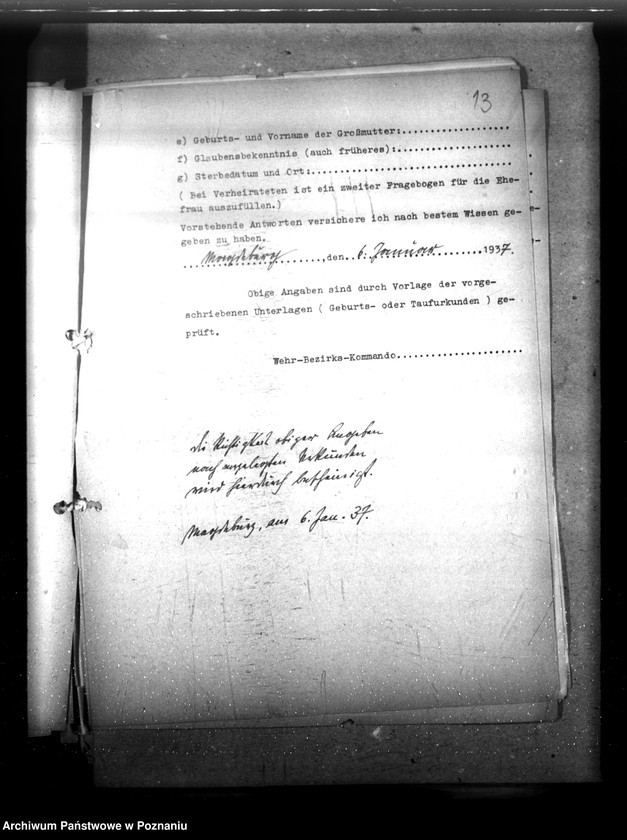 13
e) Geburts- und Vorname der Großmutter:...................
f) Glaubensbekenntnis (auch früheres):....................
g) Sterbedatum und Ort:...................................
( Bei Verheirateten ist ein zweiter Fragebogen für die Ehe-
frau auszufüllen.)
Vorstehende Antworten versichere ich nach bestem Wissen ge-
geben zu haben.
Magdeburg, den 6. Januar 1937.
Obige Angaben sind durch Vorlage der vorge-
schriebenen Unterlagen ( Geburts- oder Taufurkunden ) ge-
prüft.
Wehr-Bezirks-Kommando.....................
die Richtigkeit obiger Angaben
nach vorgelegten Urkunden
wird hierdurch bescheinigt.
Magdeburg, am 6. Jan. 37.
Archiwum Państwowe w Poznaniu